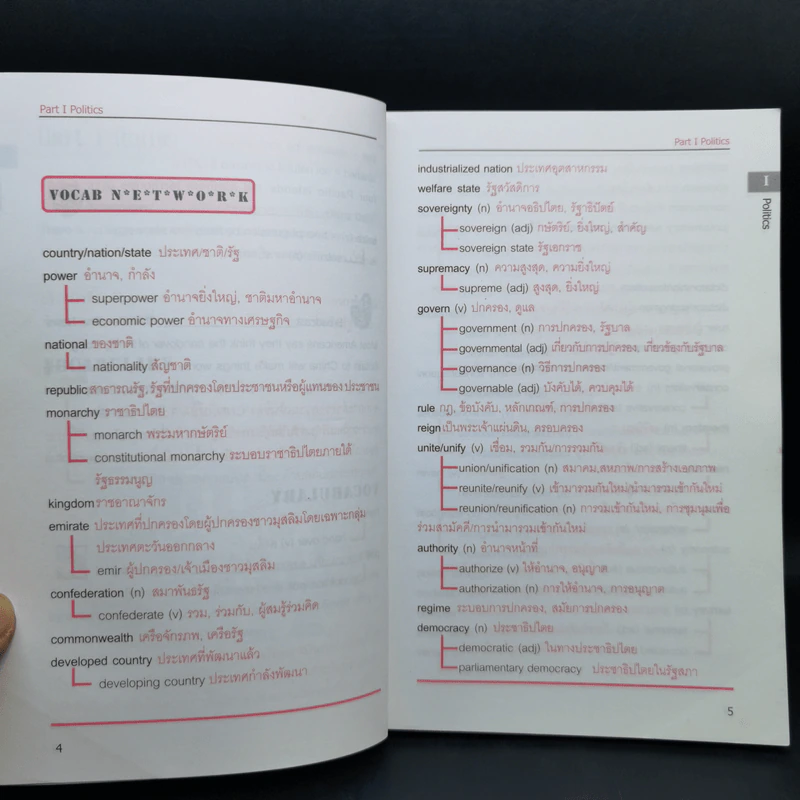 Part I Politics
VOCAB N*E*T*W*O*R*K
country/nation/state ประเทศ/ชาติ/รัฐ
power อำนาจ, กำลัง
superpower อำนาจยิ่งใหญ่, ชาติมหาอำนาจ
economic power อำนาจทางเศรษฐกิจ
national ของชาติ
nationality สัญชาติ
republic สาธารณรัฐ, รัฐที่ปกครองโดยประชาชนหรือผู้แทนของประชาชน
monarchy ราชาธิปไตย
monarch พระมหากษัตริย์
constitutional monarchy ระบอบราชาธิปไตยภายใต้
รัฐธรรมนูญ
kingdom ราชอาณาจักร
emirate ประเทศที่ปกครองโดยผู้ปกครองชาวมุสลิมโดยเฉพาะกลุ่ม
ประเทศตะวันออกกลาง
emir ผู้ปกครอง/เจ้าเมืองชาวมุสลิม
confederation (n) สมาพันธรัฐ
confederate (v) รวม, ร่วมกับ, ผู้สมรู้ร่วมคิด
commonwealth เครือจักรภพ, เครือรัฐ
developed country ประเทศที่พัฒนาแล้ว
developing country ประเทศกำลังพัฒนา
4
Part I Politics
I
Politics
industrialized nation ประเทศอุตสาหกรรม
welfare state รัฐสวัสดิการ
sovereignty (n) อำนาจอธิปไตย, รัฐาธิปัตย์
sovereign (adj) กษัตริย์, ยิ่งใหญ่, สำคัญ
sovereign state รัฐเอกราช
supremacy (n) ความสูงสุด, ความยิ่งใหญ่
supreme (adj) สูงสุด, ยิ่งใหญ่
govern (v) ปกครอง, ดูแล
government (n) การปกครอง, รัฐบาล
governmental (adj) เกี่ยวกับการปกครอง, เกี่ยวข้องกับรัฐบาล
governance (n) วิธีการปกครอง
governable (adj) บังคับได้, ควบคุมได้
rule กฎ, ข้อบังคับ, หลักเกณฑ์, การปกครอง
reign เป็นพระเจ้าแผ่นดิน, ครอบครอง
unite/unify (v) เชื่อม, รวมกัน/การรวมกัน
union/unification (n) สมาคม,สหภาพ/การสร้างเอกภาพ
reunite/reunify (v) เข้ามารวมกันใหม่/นำมารวมเข้ากันใหม่
reunion/reunification (n) การรวมเข้ากันใหม่, การชุมนุมเพื่อ
ร่วมสามัคคี/การนำมารวมเข้ากันใหม่
authority (n) อำนาจหน้าที่
authorize (v) ให้อำนาจ, อนุญาต
authorization (n) การให้อำนาจ, การอนุญาต
regime ระบอบการปกครอง, สมัยการปกครอง
democracy (n) ประชาธิปไตย
democratic (adj) ในทางประชาธิปไตย
parliamentary democracy ประชาธิปไตยในรัฐสภา
5